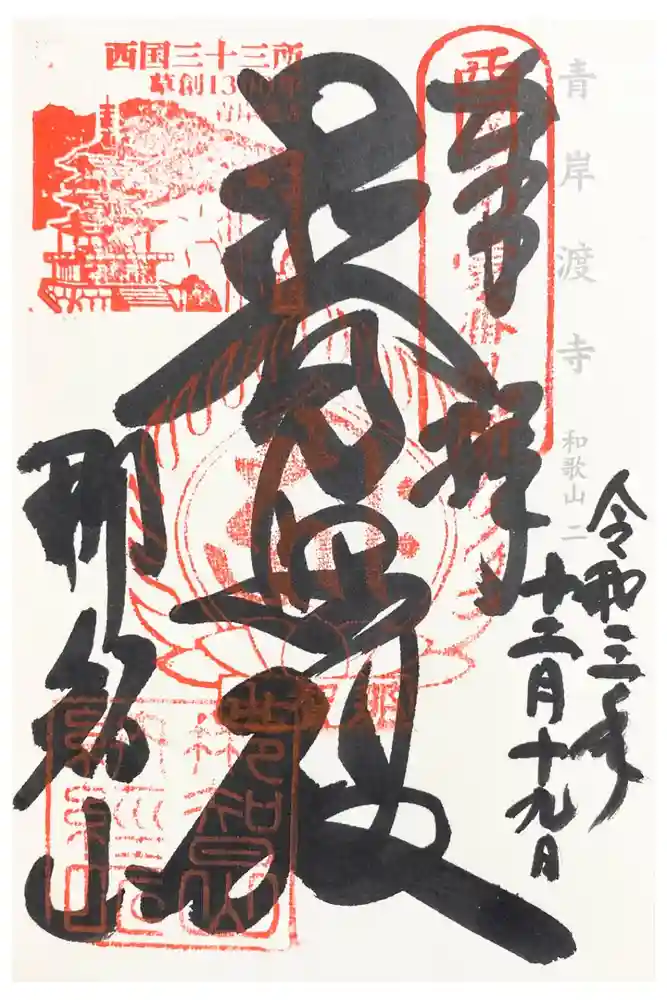 青岸渡寺 和歌山二
奉拝
令和三年
十二月十九日
普照殿
那智山
西国三十三所
草創1300年